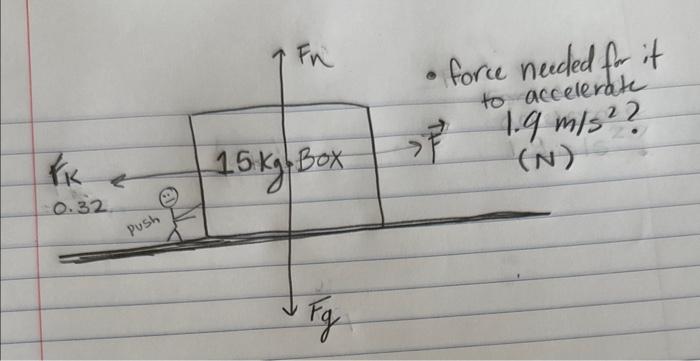 Fn
• force needed for it
to accelerate
1.9 m/s²?
(N)
F⃗
15 kg Box
Fk
0.32
push
Fg